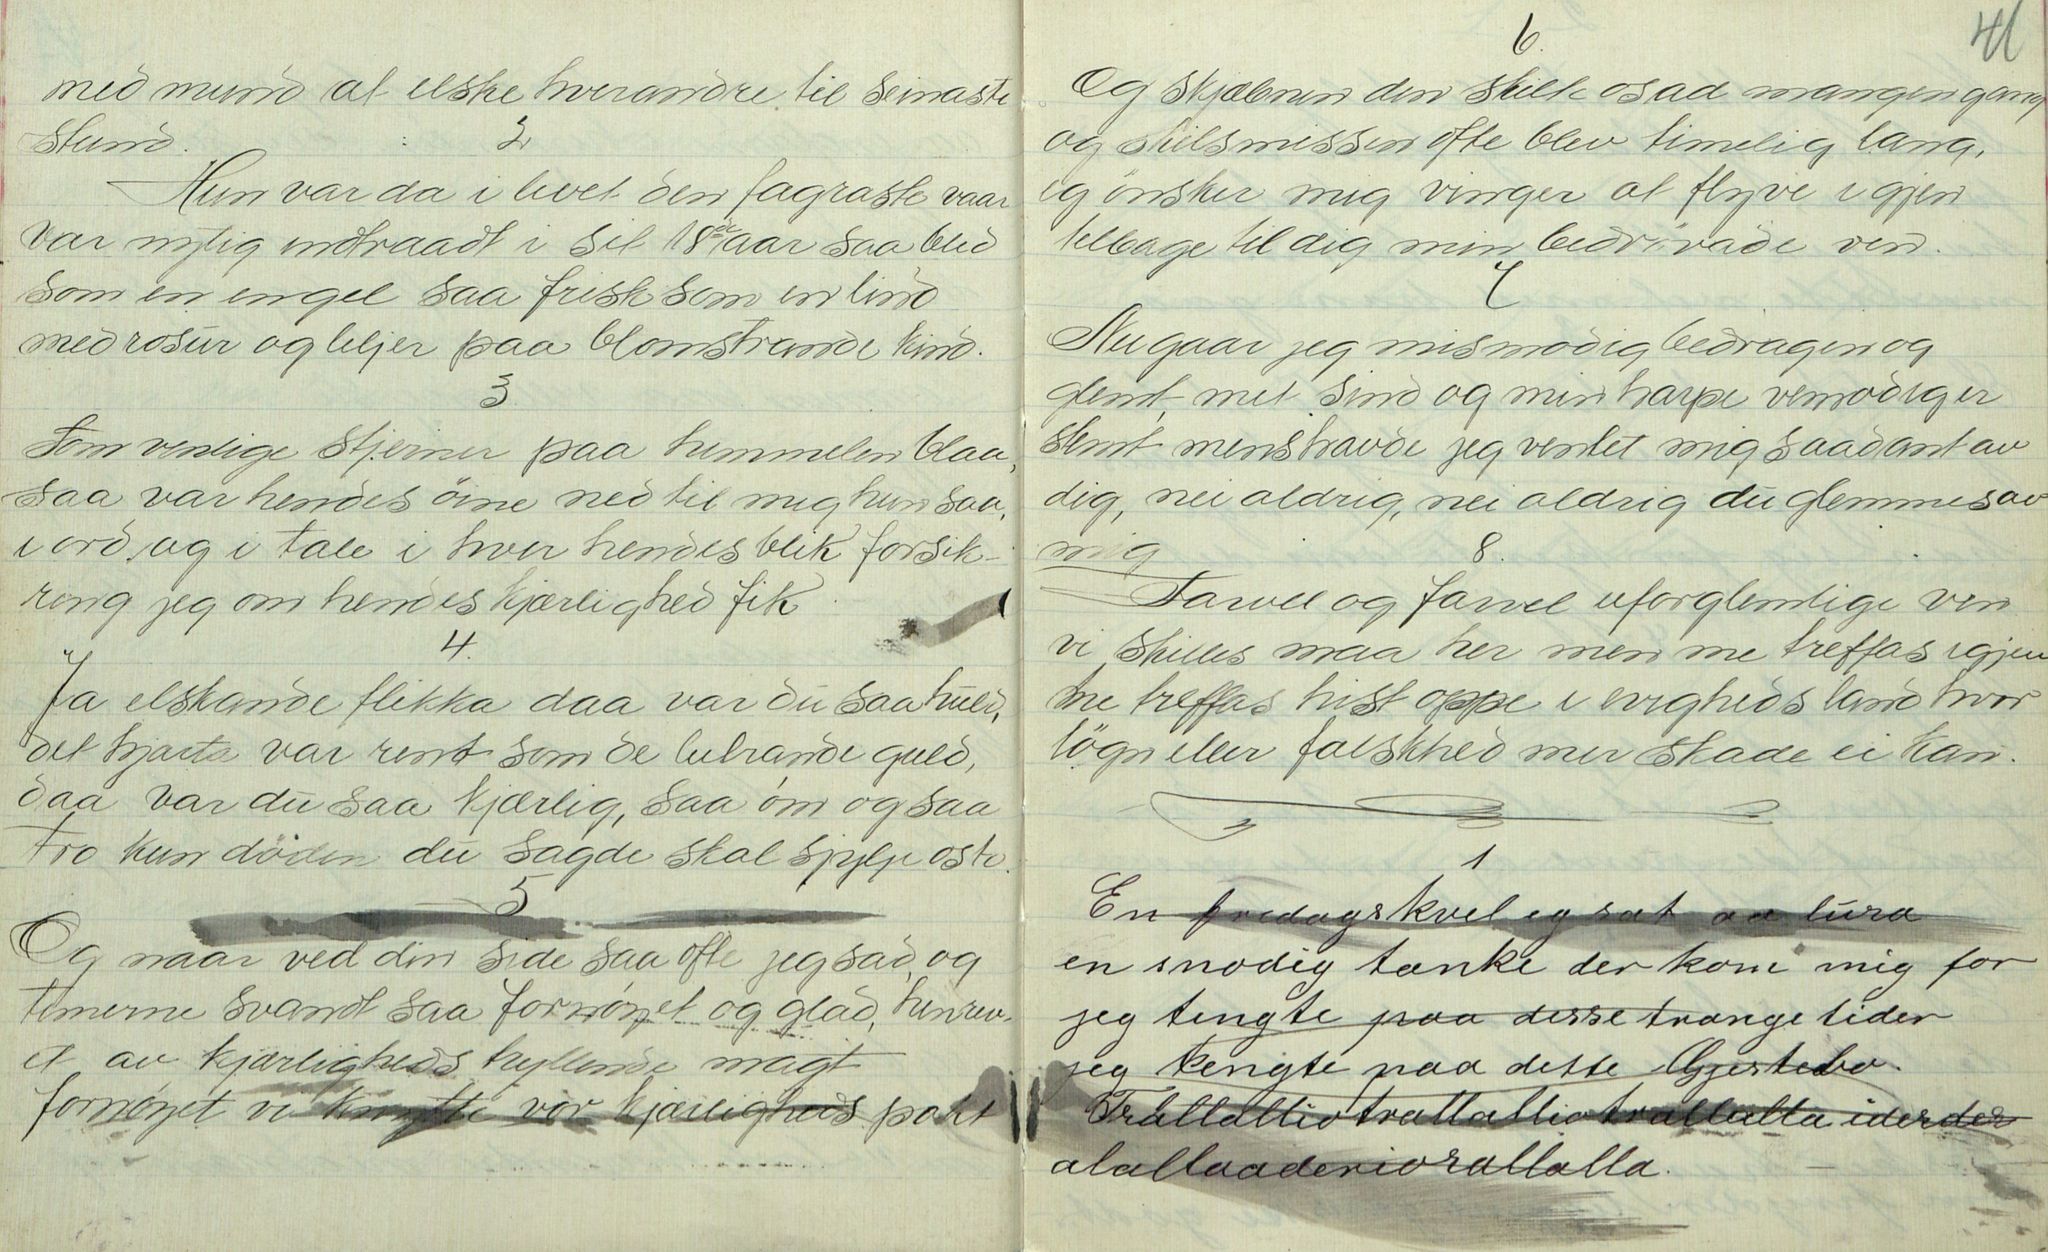 med mund at elske hverandre til seinaste
stund.
2
Hun var da i livet den fagraste vaar
var nylig indtraadt i sit 18de aar saa blid
som en engel saa frisk som en lind
med rosur og liljer paa blomstrande kind.
3
Som venlige stjerner paa himmelen blaa,
saa var hendes öine ned til mig hun saa,
i ord og i tale i hver hendes blik forsik-
ring jeg om hendes kjærlighed fik
4.
Ja elskande flikka daa var du saa huld,
det hjarta var rent som de lutrande guld,
daa var du saa kjærlig, saa öm og saa
tro kun döden du sagde skal skylje os to.
5
Og naar ved din side saa ofte jeg sad, og
timerne svandt saa fornöyet og glad, henrev-
et av kjærligheds hyllende magt
fornöyet vi knytte vor kjærligheds pakt
41
6.
Og skjæbnen den skilte os ad mangen gang
og skilsmissen ofte blev timelig lang,
eg önsker mig vinger at flyve igjen
tilbage til dig min bedrövade ven.
7
Nu gaar jeg mismodig bedragen og
glemt, mit sind og min harpe vemodig er
stemt mens havde jeg ventet mig saadant av
dig, nei aldrig, nei aldrig du glemmes av
mig
8.
Farvel og farvel uforglemlige ven
vi skilles maa her men me treffas igjen
me treffas hist oppe i evigheds land hvor
lögn eller falskhed mer skade ei kan.
1
En fredagskvel eg sat aa lura
en snodig tanke der kom mig for
jeg tengte paa desse trange tider
jeg tengte paa dette Gjestebo.
Trallallio trallallio trallalla ider der
alallaaderiorallalla.